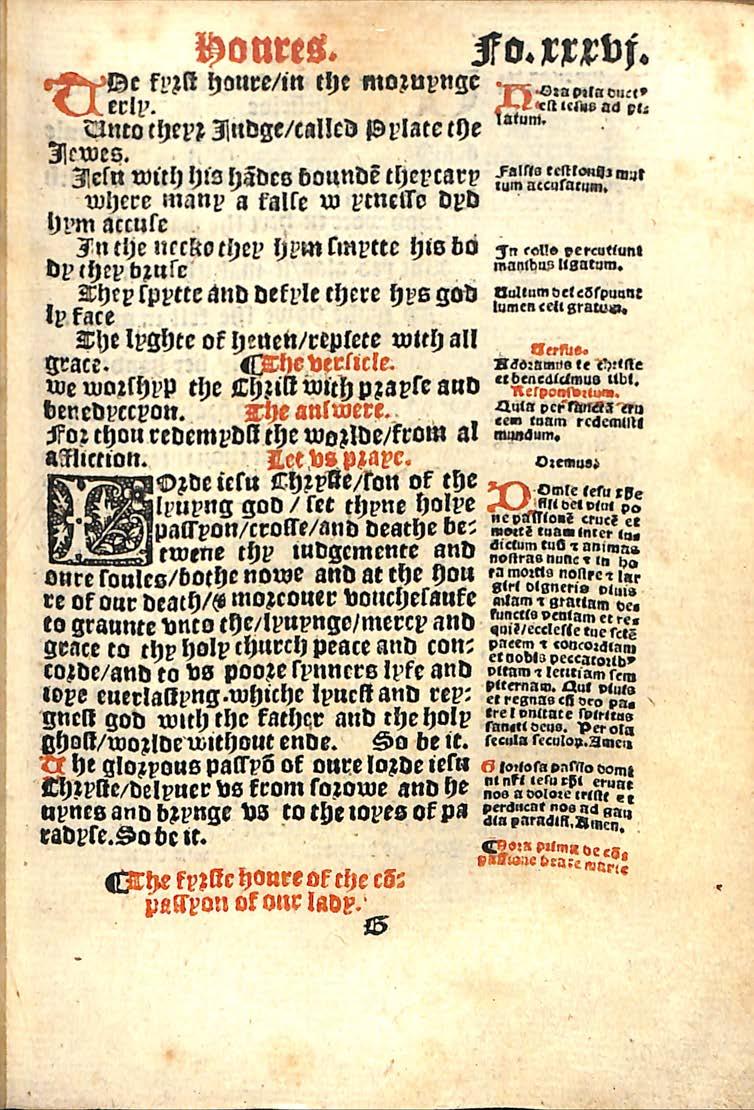 Houres.
Fo.xxxvj.
THe fyrst houre/in the mornynge
erly.
Unto theyr Judge/called Pylate the
Jewes.
Jesu with his hādes boundē they cary
where many a false w ytnesse dyd
hym accuse
In the necke they hym smytte his bo
dy they bruse
They spytte and defyle there hys god
ly face
The lyghte of heuen/replete with all
grace. ¶The versicle.
we worshyp the Christ with prayse and
benedyccyon. The answere.
For thou redemydst the worlde/from al
affliction. Let vs praye.
LOrde iesu Chryste/son of the
lyuyng god / set thyne holye
passyon/crosse/and deathe be:
twene thy iudgemente and
oure soules/bothe nowe and at the hou
re of our death/& moreouer vouchesaufe
to graunte vnto the/lyuynge/mercy and
grace to thy holy church peace and con:
corde/and to vs poore synners lyfe and
ioye euerlastyng.whiche lyuest and rey:
gnest god with the father and the holy
ghost/worlde without ende. So be it.
The gloryous passyō of oure lorde iesu
Chryste/delyuer vs from sorowe and he
uynes and brynge vs to the ioyes of pa
radyse.So be it.
¶The fyrste houre of the cō:
passyon of our lady.
G
HOra pria duct⁹
est iesus ad pi:
latum.
Falsis testioniis mul
tum accusatum.
In collo percutiunt
manibus ligatum.
Uultum dei cōspuunt
lumen celi gratum.
Uersus.
Adoramus te christe
et benedicimus tibi.
Responsorium.
Quia per sanctā cru
cem tuam redemisti
mundum.
Oremus.
DOmīe iesu xp̄e
fili dei viui po
ne passionē crucē et
mortē tuam inter iu
dicium tuū ⁊ animas
nostras nunc ⁊ in ho
ra mortis nostre ⁊ lar
giri digneris viuis
mīam ⁊ gratiam de:
functis veniam et re:
quiē/ecclesie tue sctē
pacem ⁊ concordiam
et nobis peccatorib⁹
vitam ⁊ letitiam sem
piternam. Qui viuis
et regnas cū deo pa:
tre I vnitate spiritus
sancti deus. Per oīa
secula seculoꝝ.Amen
Gloriosa passio domi
ni nr̄i iesu xp̄i eruat
nos a dolore tristi et
perducat nos ad gau
dia paradisi.Amen.
¶Hora prima de cō:
passione beate marie